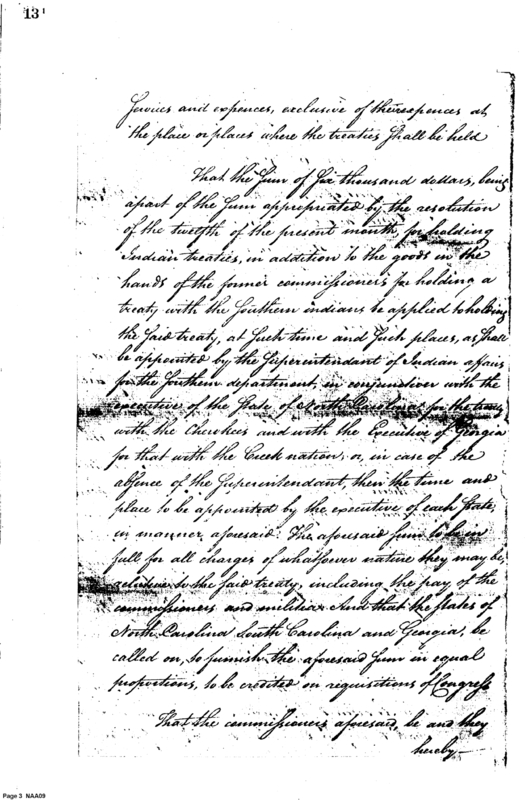 131
Services and expences, exclusive of their expences at
the place or places where the treaties shall be held
That the Sum of Six thousand dollars, being
a part of the Sum appropriated by the resolution
of the twelfth of the present month, for holding
Indian treaties, in addition to the goods in the
hands of the former commissioners for holding a
treaty with the Southern indians be applied to holding
the Said treaty, at Such time and Such places, as Shall
be appointed by the Superintendant of Indian affairs
for the Southern department, in conjunction with the
executive of the State of North Carolina for the treaty
with the Cherokees and with the Executive of Georgia
for that with the Creek nation; or, in case of the
absence of the Superintendant, then the time and
place to be appointed by the executive of each State,
in manner aforesaid. The aforesaid Sum to be in
full for all charges of whatsoever nature they may be,
relative to the Said treaty, including the pay of the
commissioners and militia. And that the States of
North Carolina South Carolina and Georgia, be
called on, to furnish the aforesaid Sum in equal
proportions, to be credited on requisitions of Congress
That the commissioners aforesaid, be and they
hereby
Page 3 NAA09